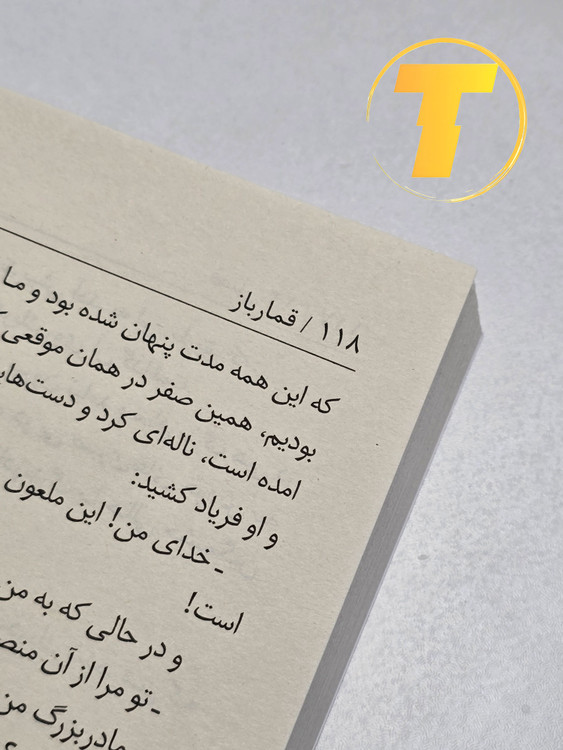 T
۱۱۸ / قمارباز
که این همه مدت پنهان شده بود و ما
بودیم، همین صفر در همان موقعی
امده است، ناله‌ای کرد و دست‌های
و او فریاد کشید:
ـ خدای من! این ملعون
است!
و در حالی که به من
ـ تو مرا از آن
مادربزرگ من